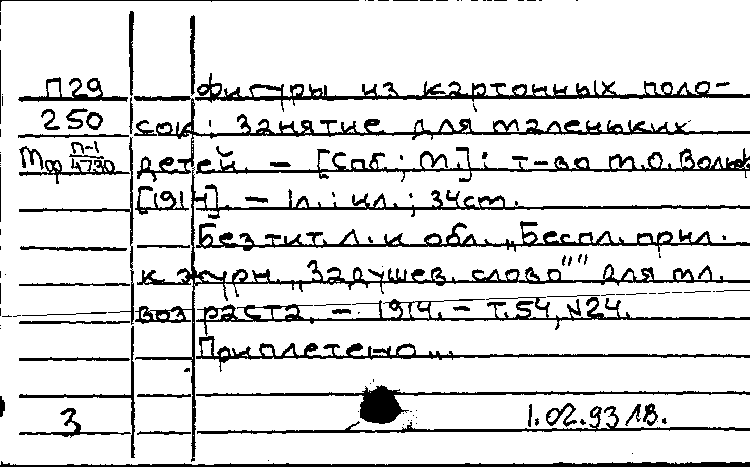 П29 фигуры из картонных поло-
250 сок: Занятие для маленьких
Мф П-1/4730 детей. – [Спб.; М.]: т-во М.О. Вольф
[1914]. – 1л.: ил.; 34см.
Без тит. л. и обл. „Беспл. прил.
к журн. „Задушев. слово"" для мл.
возраста. – 1914. – т.54, №24.
Приплетено...
3 1.02.93